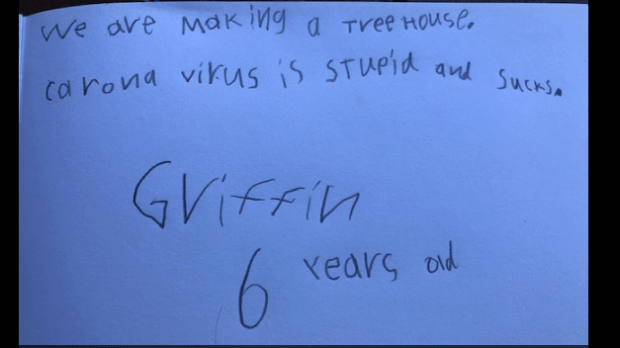 We are Making a Tree House.
Carona virus is stupid and sucks.
Griffin
6 years old